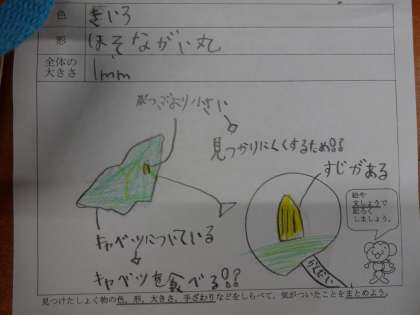 色 きいろ
形 ほそながい丸
全体の大きさ 1mm
米つぶより小さい
見つかりにくくするため??
すじがある
キャベツについている
キャベツを食べる??
かんさつ
絵や
文しょうで
記ろく
しましょう。
見つけたしょく物の色、形、大きさ、手ざわりなどをしらべて、気がついたことをまとめよう。